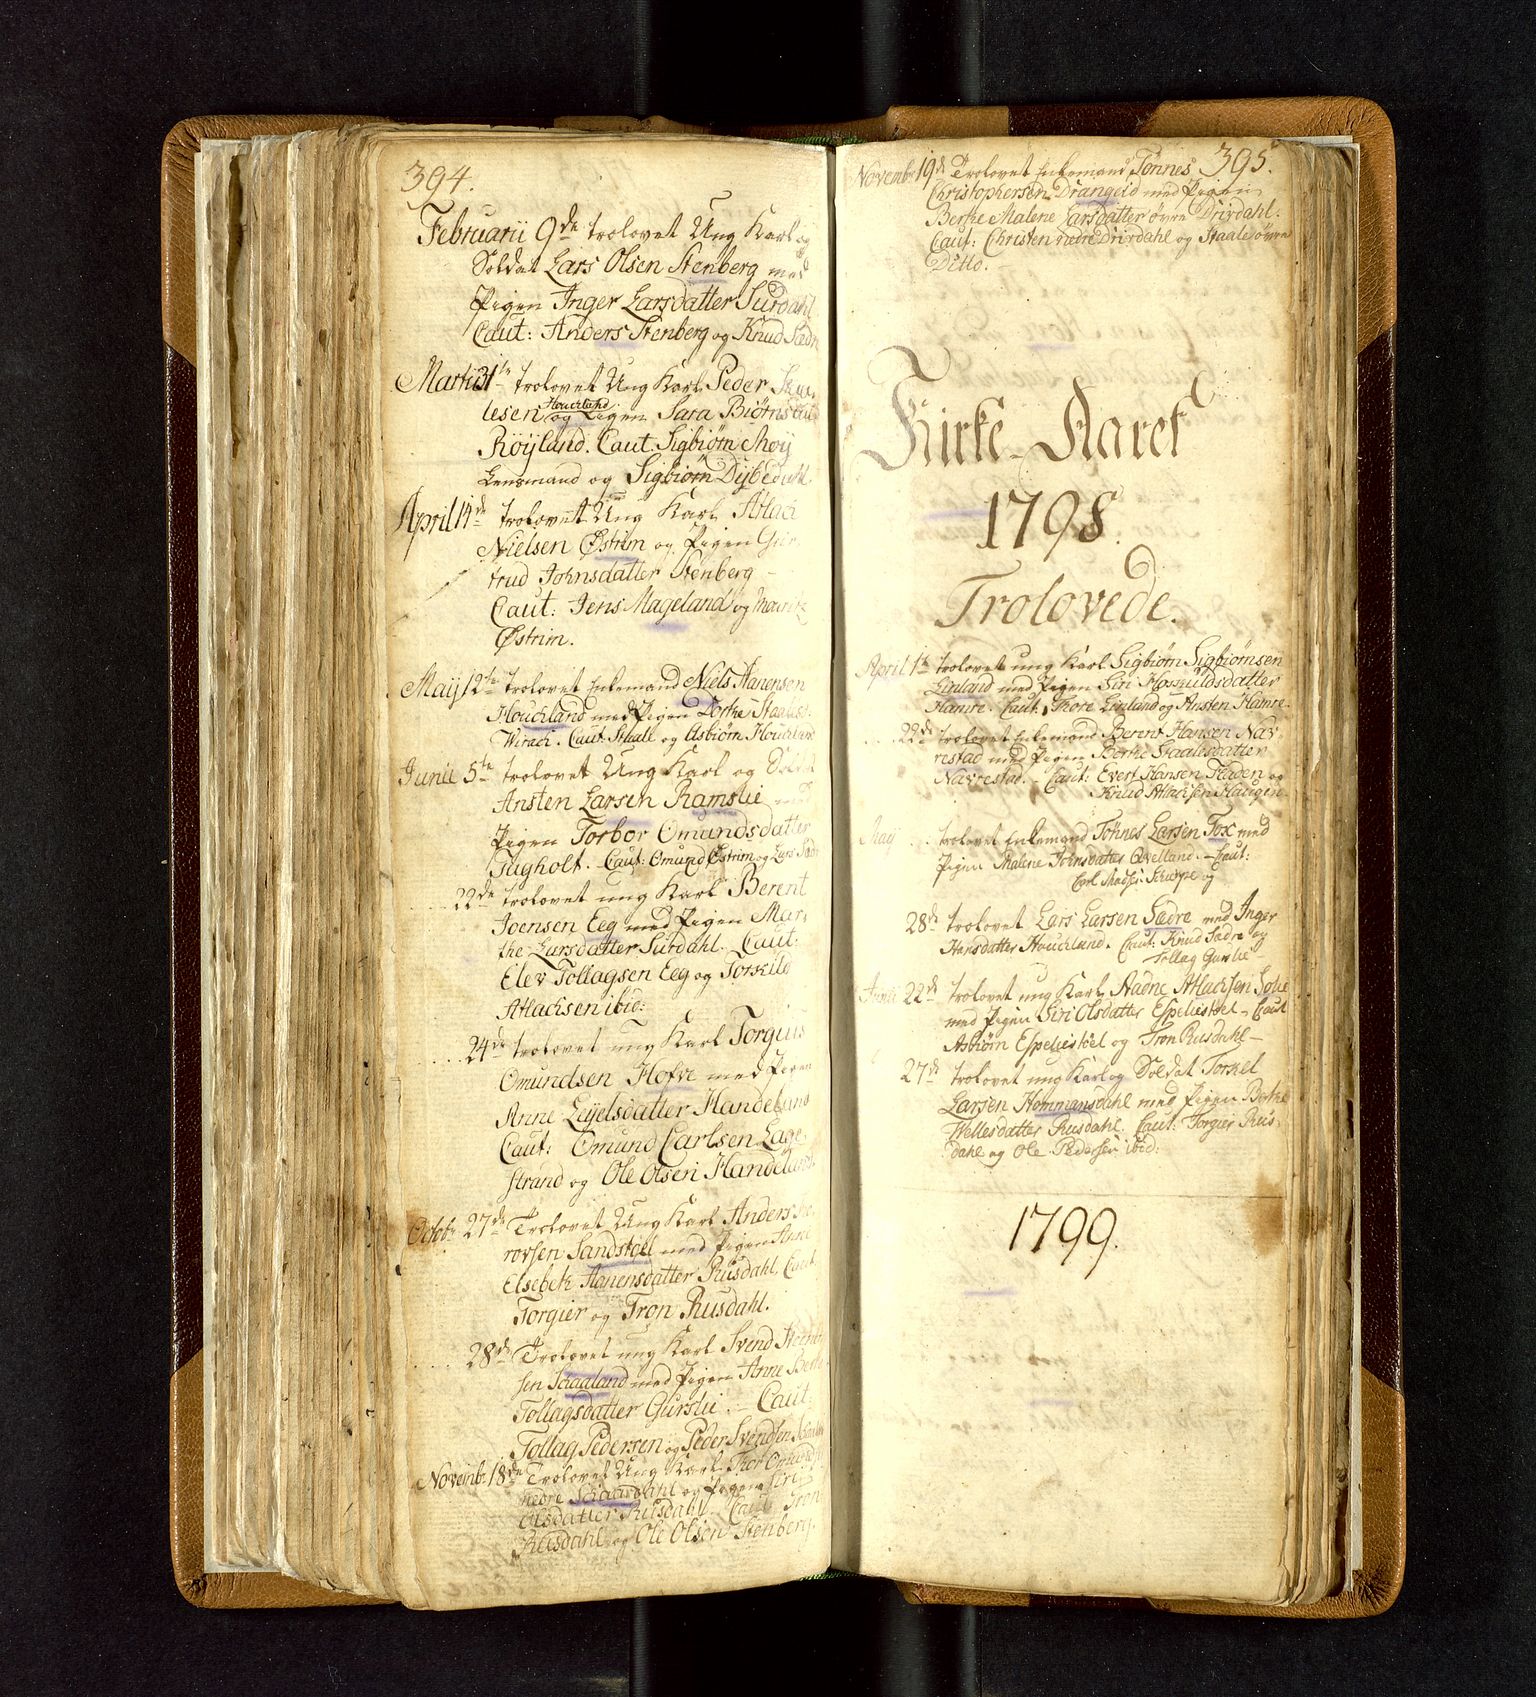 394.
Februarii 9de trolovet Ung Karl og
Soldat Lars Olsen Stenberg med
Pigen Inger Larsdatter Surdahl
Caut: Anders Stenberg og Knud Sædre
Martii 31te trolovet Ung Karl Peder
lesen Houchland og Pigen Sara Biørnsdat
Röÿland. Caut. Sigbiørn Moÿ
Lensmand og Sigbiørn
April 14de trolovet Ung Karl Atlach
Nielsen Østrim og Pigen Gier
trud Johnsdatter Stenberg
Caut: Jens Mageland og Mauritz
Østrim.
Maÿ 12te trolovet Enkemand Niels Aanensen
Houchland med Pigen Dorthe Staalesd:
Wirach. Caut: Staale og Asbiørn Houchland
Junii 5te trolovet Ung Karl og Soldat
Ansten Larsen Ramslie med
Pigen Torbor Omundsdatter
Fugholt. Caut: Omund Østrim og Lars Sædre
22de trolovet ung Karl Berent
Joensen Eeg med Pigen Mar
the Larsdatter Surdahl. Caut:
Elev Tollagsen Eeg og Torkild
Atlachsen ibid:
24de trolovet ung Karl Torgius
Omundsen Hofve med Pigen
Anne Leÿelsdatter Handeland
Caut: Omund Carlsen Lage
strand og Ole Olsen Handeland
Octobr 27de Trolovet Ung Karl Anders
rovsen Sandstöel med Pigen Anne
Elsebeth Aanensdatter Rusdahl, Caut.
Torgier og Tron Rusdahl.
28de Trolovet ung Karl Svend
sen Scaaland med Pigen Anne Berthe
Tollagsdatter Gurslie. - Caut:
Tollag Pedersen og Peder Svendsen
Novembr 18de Trolovet Ung Karl Thor Omunds
nedre og Pigen Siri
Olsdatter Rusdahl. Caut Tron
Rusdahl og Ole Olsen Stenberg.
395.
Novembr 19de Trolovet Enkemand Tønnes
Christophersen Drangeid med Pigen
Berthe Malene Larsdatter øvre Drivdahl.
Caut: Christen nedre Drivdahl og Staale øvre
Ditto.
Kirke-Aaret
1798.
Trolovede.
April 1te trolovet ung Karl Sigbiørn Sigbiørnsen
Linland med Pigen Siri Haavuldsdatter
Hamre. Caut: Thore Linland og Ansten Hamre.
22de trolovet Enkemand Berent Hansen Nav
restad med Pigen Berthe Staalesdatter
Navrestad. - Caut: Evert Hansen Fladen og
Knud Atlachsen Haugen
Maÿ trolovet Enkemand Tønnes Larsen Fox med
Pigen Malene Johnsdatter Qvelland. - Caut:
Carl Madsen og
28de trolovet Lars Larsen Sædre med Inger
Hansdatter Houchland. Caut: Knud Sædre og
Tollag Gurslie
Junii 22de trolovet ung Karl Aadne Atlachsen
med Pigen Siri Olsdatter Espelistöel - Caut
Asbiørn Espelistöel og Tron Rusdahl -
27de trolovet ung Karl og Soldat Torkel
Larsen Hommansdahl med Pigen Berthe
Wellesdatter Rusdahl. Caut: Torgier Rus
dahl og Ole Pedersen ibid:
1799.